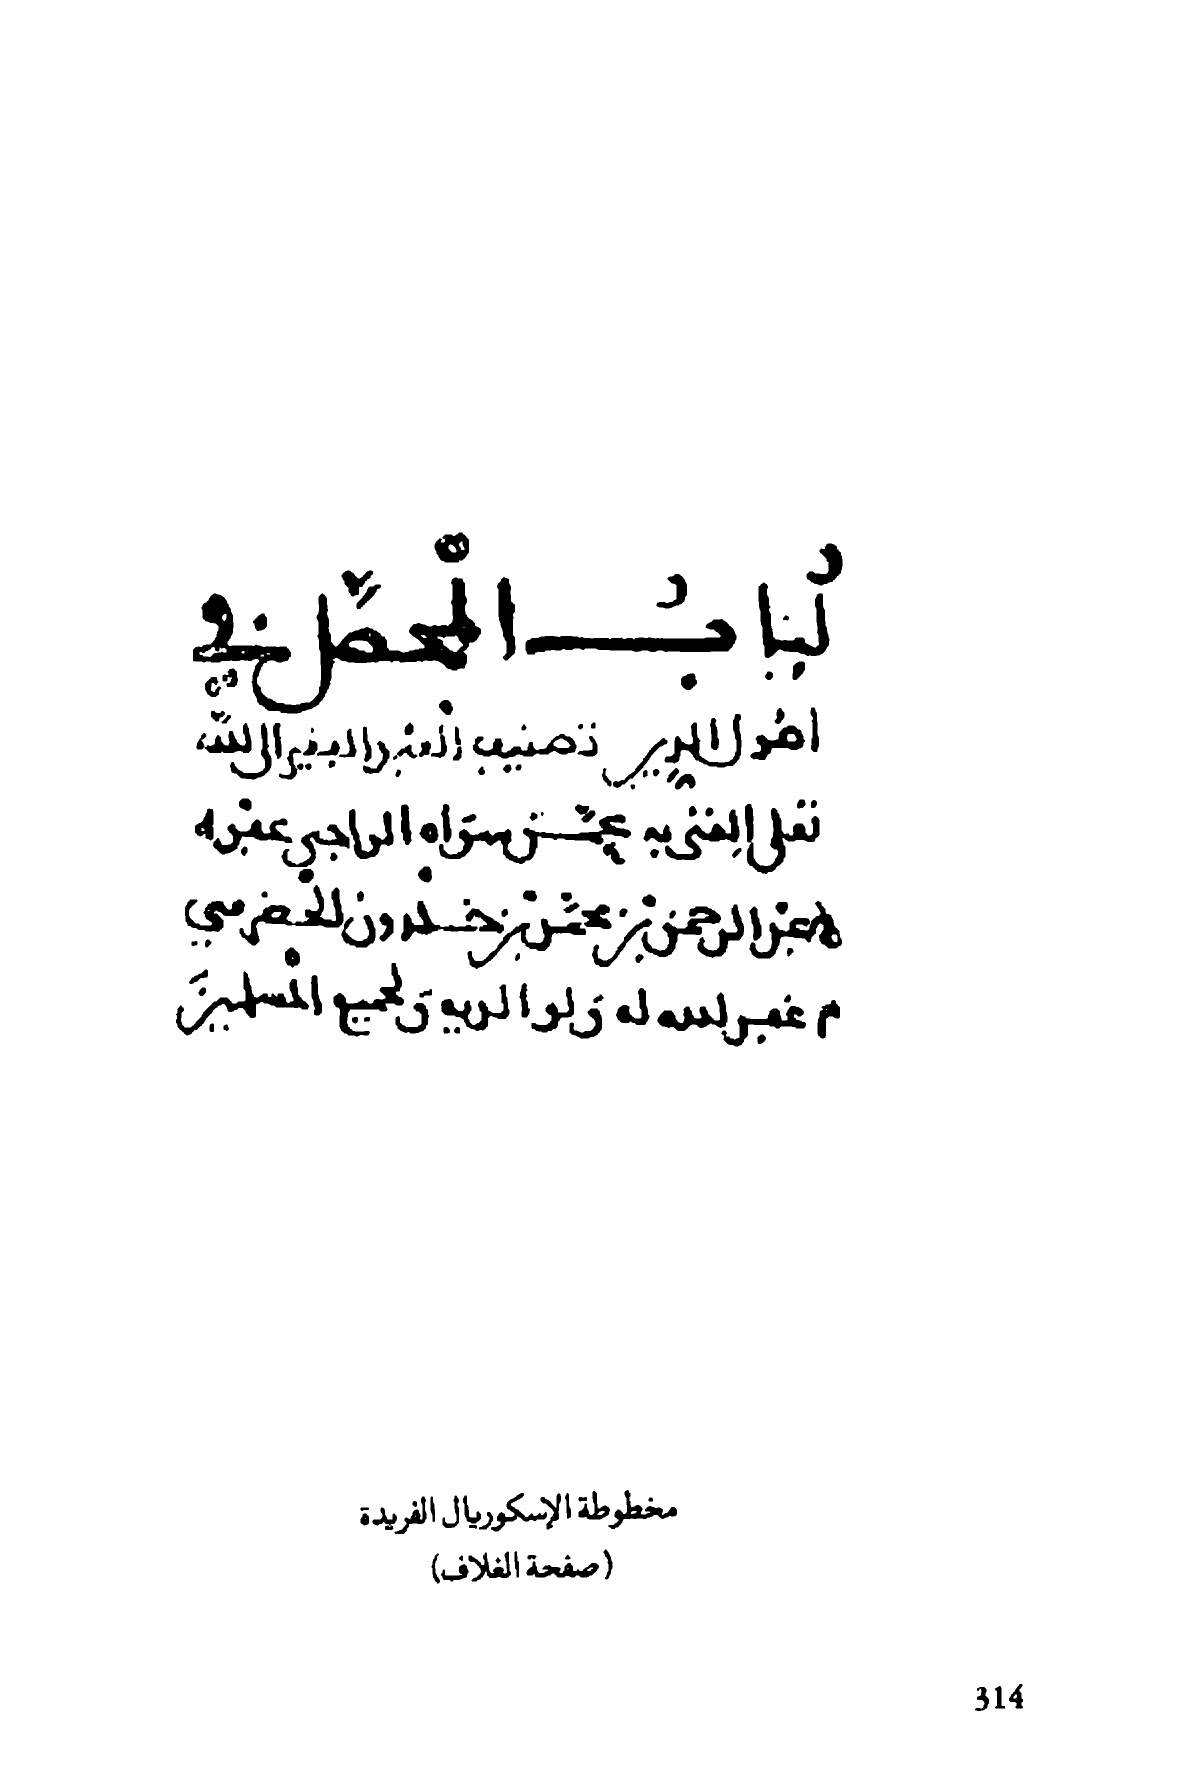 لُبابُ المحصّل في
أصول الدين تصنيف العبد الفقير إلى الله
تعلى الغني به عمّن سواه الراجي عفوه
عبد الرحمن بن محمّد بن خلدون الحضرمي
غفر الله له ولوالديه ولجميع المسلمين
مخطوطة الإسكوريال الفريدة
(صفحة الغلاف)
314